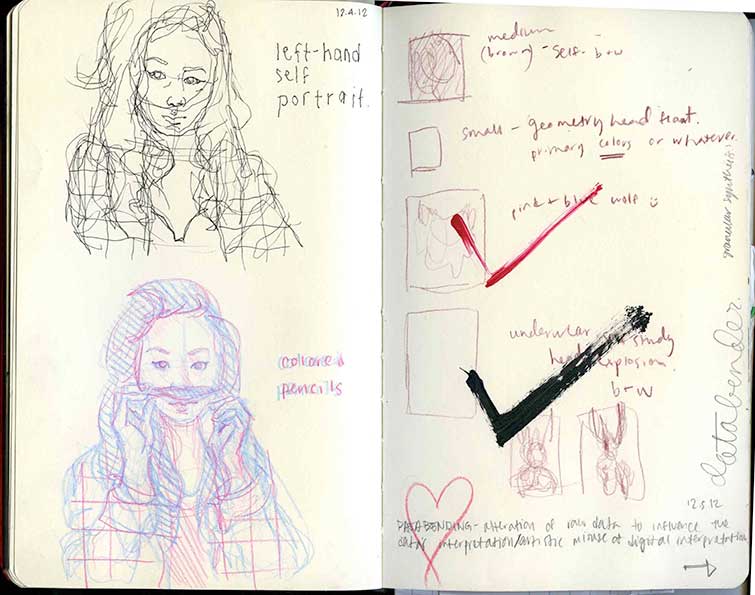 12.4.12
left-hand
self
portrait.
colored
pencils
medium
(brown) - self - b+w
small - geometry head float.
primary colors or whatever.
pink + blue wolf
study
head explosion
b+w
granular synthesis
databender.
12.5.12
DATABENDING - alteration of raw data to influence the
data interpretation/artistic misuse of digital interpretation